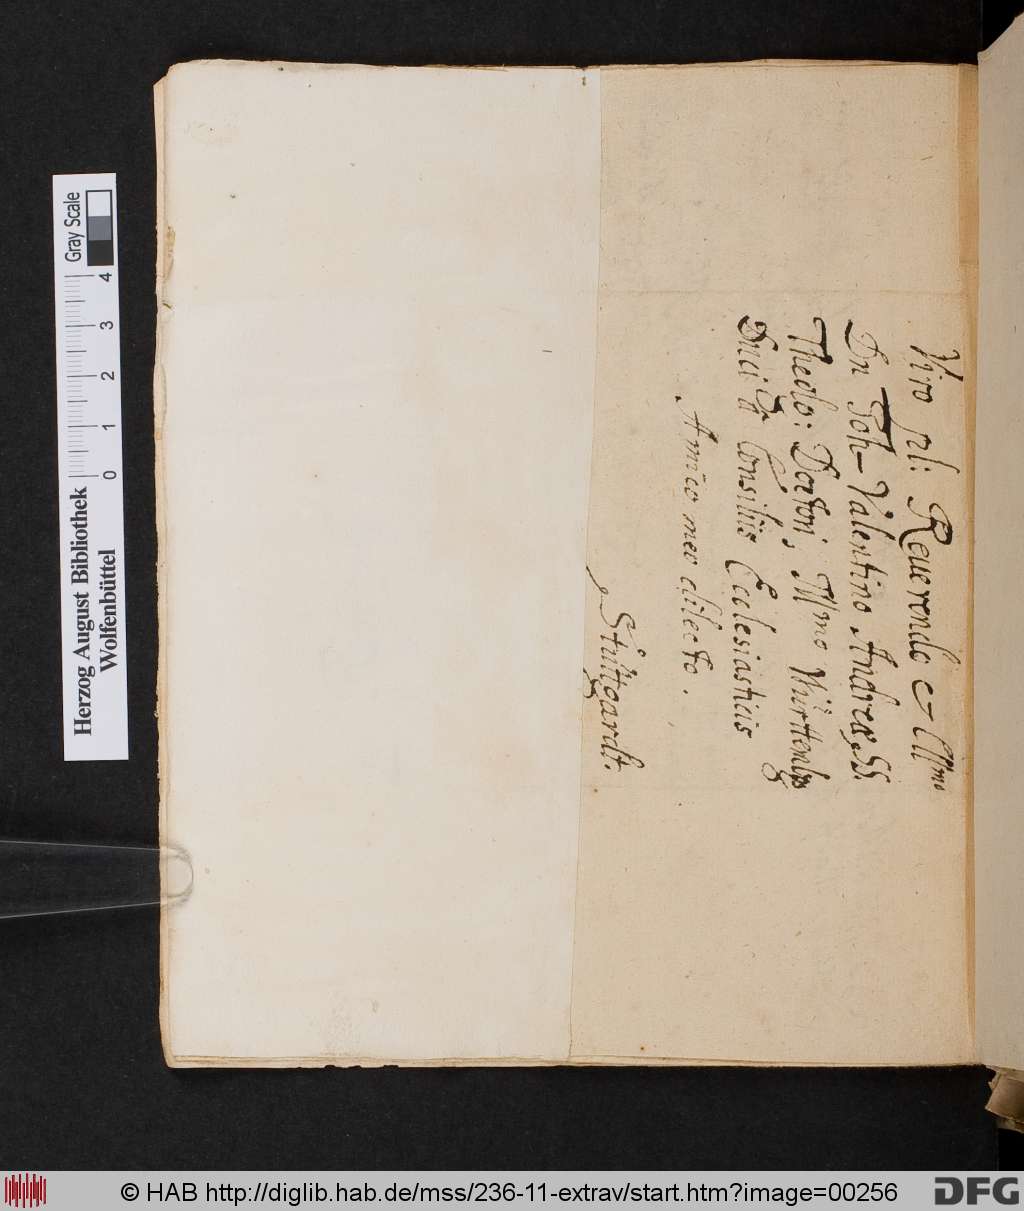 Viro pl: Reuerendo & Cl.mo
Dn Joh- Valentino Andreæ, SS.
Theolo: Doctori, Ill.mo Würtembs
Duci a Consiliis Ecclesiasticis
Amico meo dilecto.
Stuttgardt.
Herzog August Bibliothek
Wolfenbüttel
0 1 2 3 4
Gray Scale
© HAB http://diglib.hab.de/mss/236-11-extrav/start.htm?image=00256
DFG